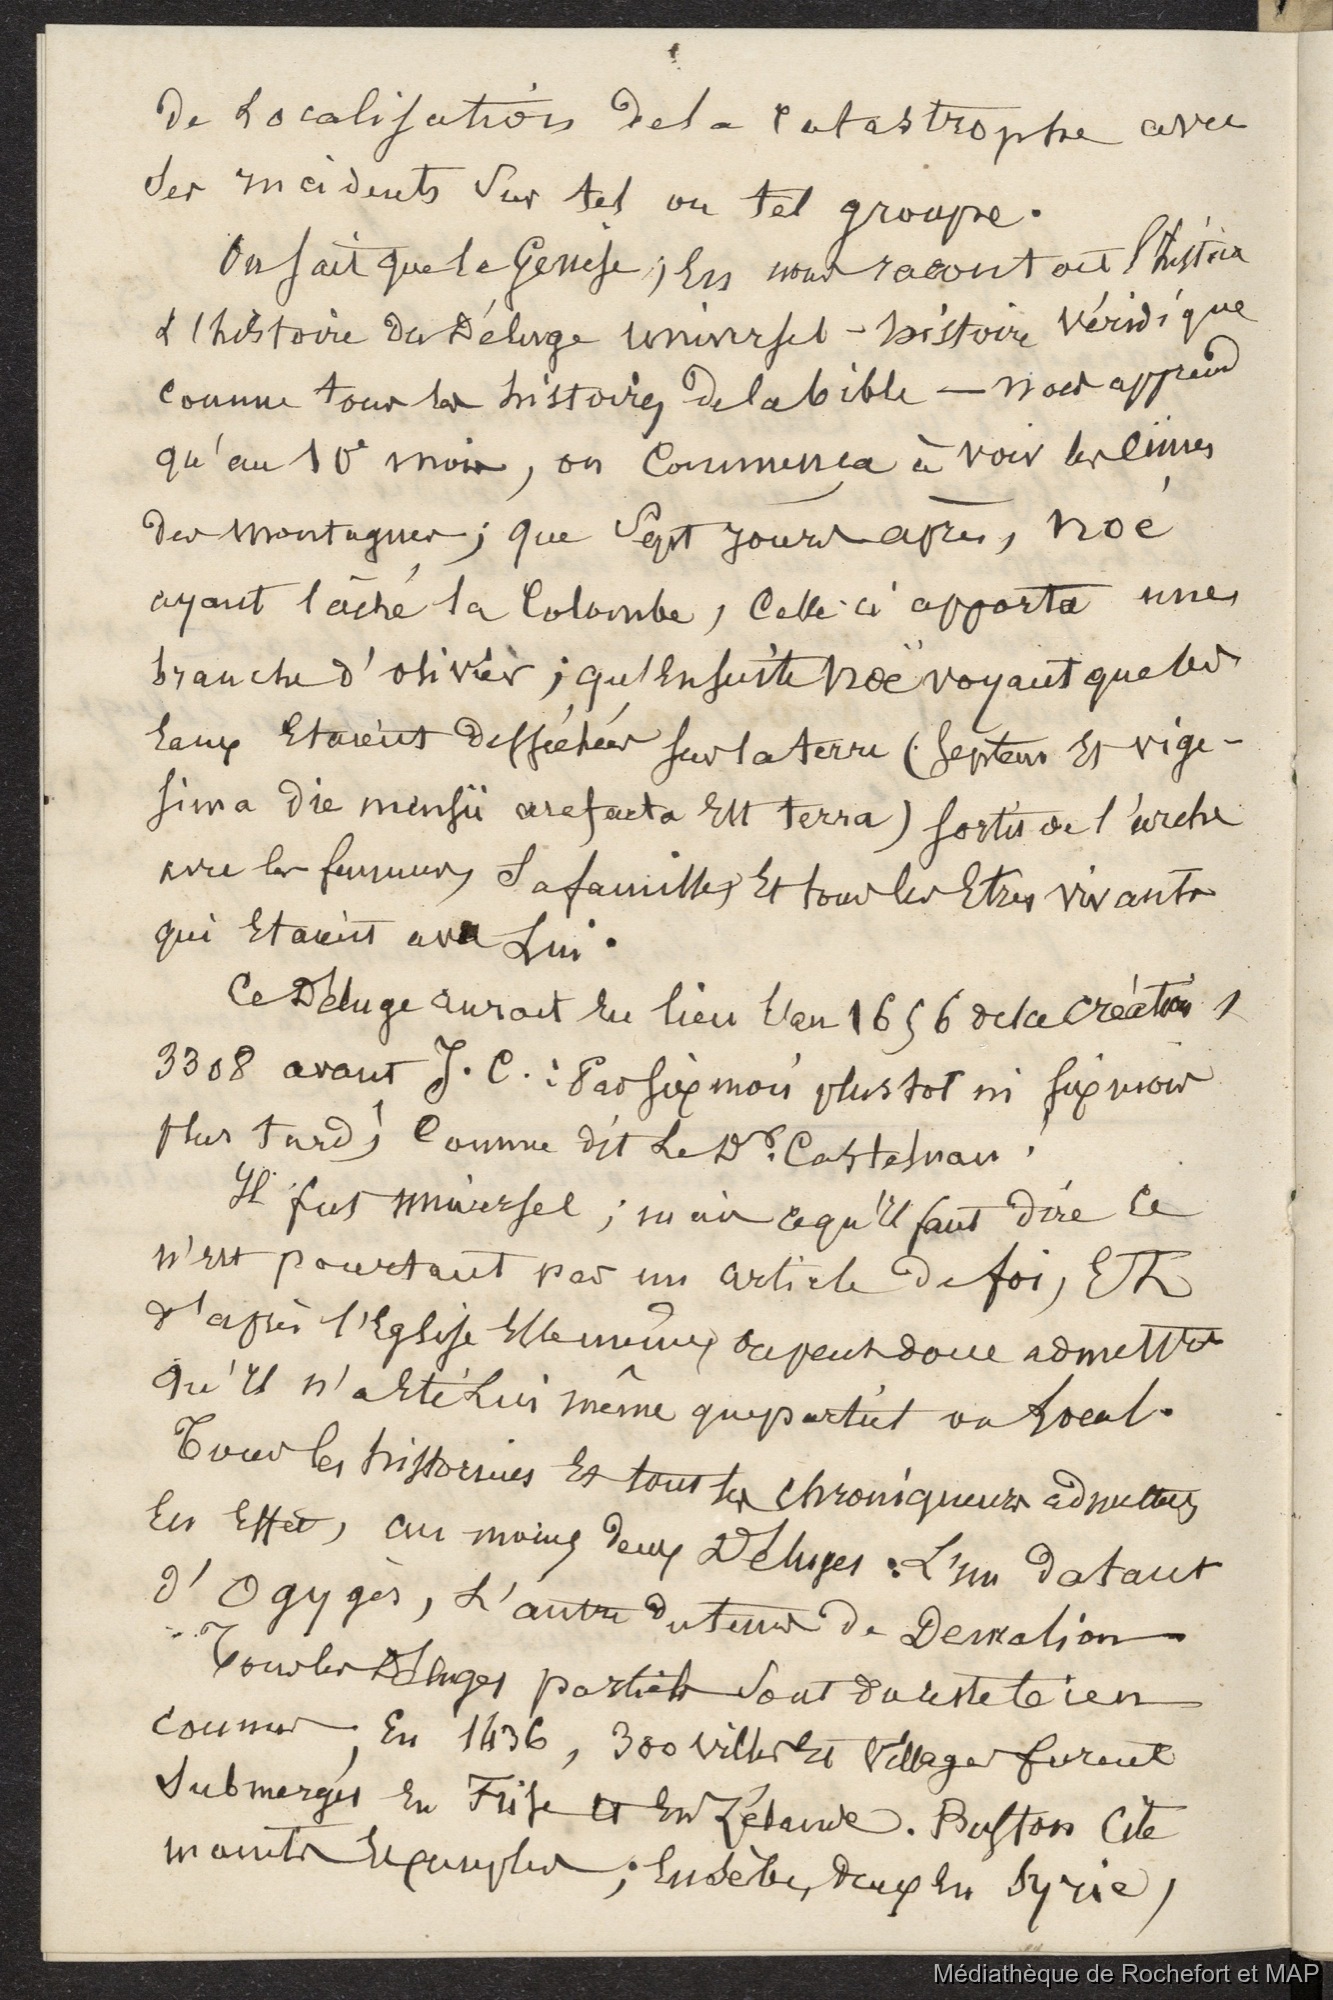 de Localisation de la Catastrophe avec
ses incidents sur tel ou tel groupe.
On sait que la Genèse, en nous racontant l'histoire
l'histoire du Déluge universel – histoire véridique
comme tous les histoires de la bible — nous apprend
qu'au 10e mois, on commença à voir les cimes
des montagnes ; que sept jours après, Noé
ayant lâché la Colombe, celle-ci apporta une
branche d'olivier ; qu'ensuite Noë voyant que les
eaux étaient desséchées sur la terre (septem et vige-
sima die mensii arefacta est terra) sortit de l'arche
avec les femmes, sa famille, et tous les êtres vivants
qui étaient avec Lui.
Ce Déluge aurait eu lieu l'an 1656 de la création,
3308 avant J. C. : Pas six mois plus tôt ni six mois
plus tard, comme dit le Dr. Castelnau !
Il fut universel ; mais ce qu'il faut dire ce
n'est pourtant pas un article de foi, Et
d'après l'Eglise elle même, on peut donc admettre
qu'il n'a été Lui même que partiel ou Local.
Tous les historiens et tous les chroniqueurs admettent
en effet, au moins deux Déluges : L'un datant
d'Ogygès, L'autre du tems de Deucalion
Tous les Déluges partiels sont du reste bien
connus, En 1436, 300 villes et villages furent
submergés en Frise et en Zélande. Buffon cite
maints exemples ; Eusèbe, deux en Syrie,
Médiathèque de Rochefort et MAP